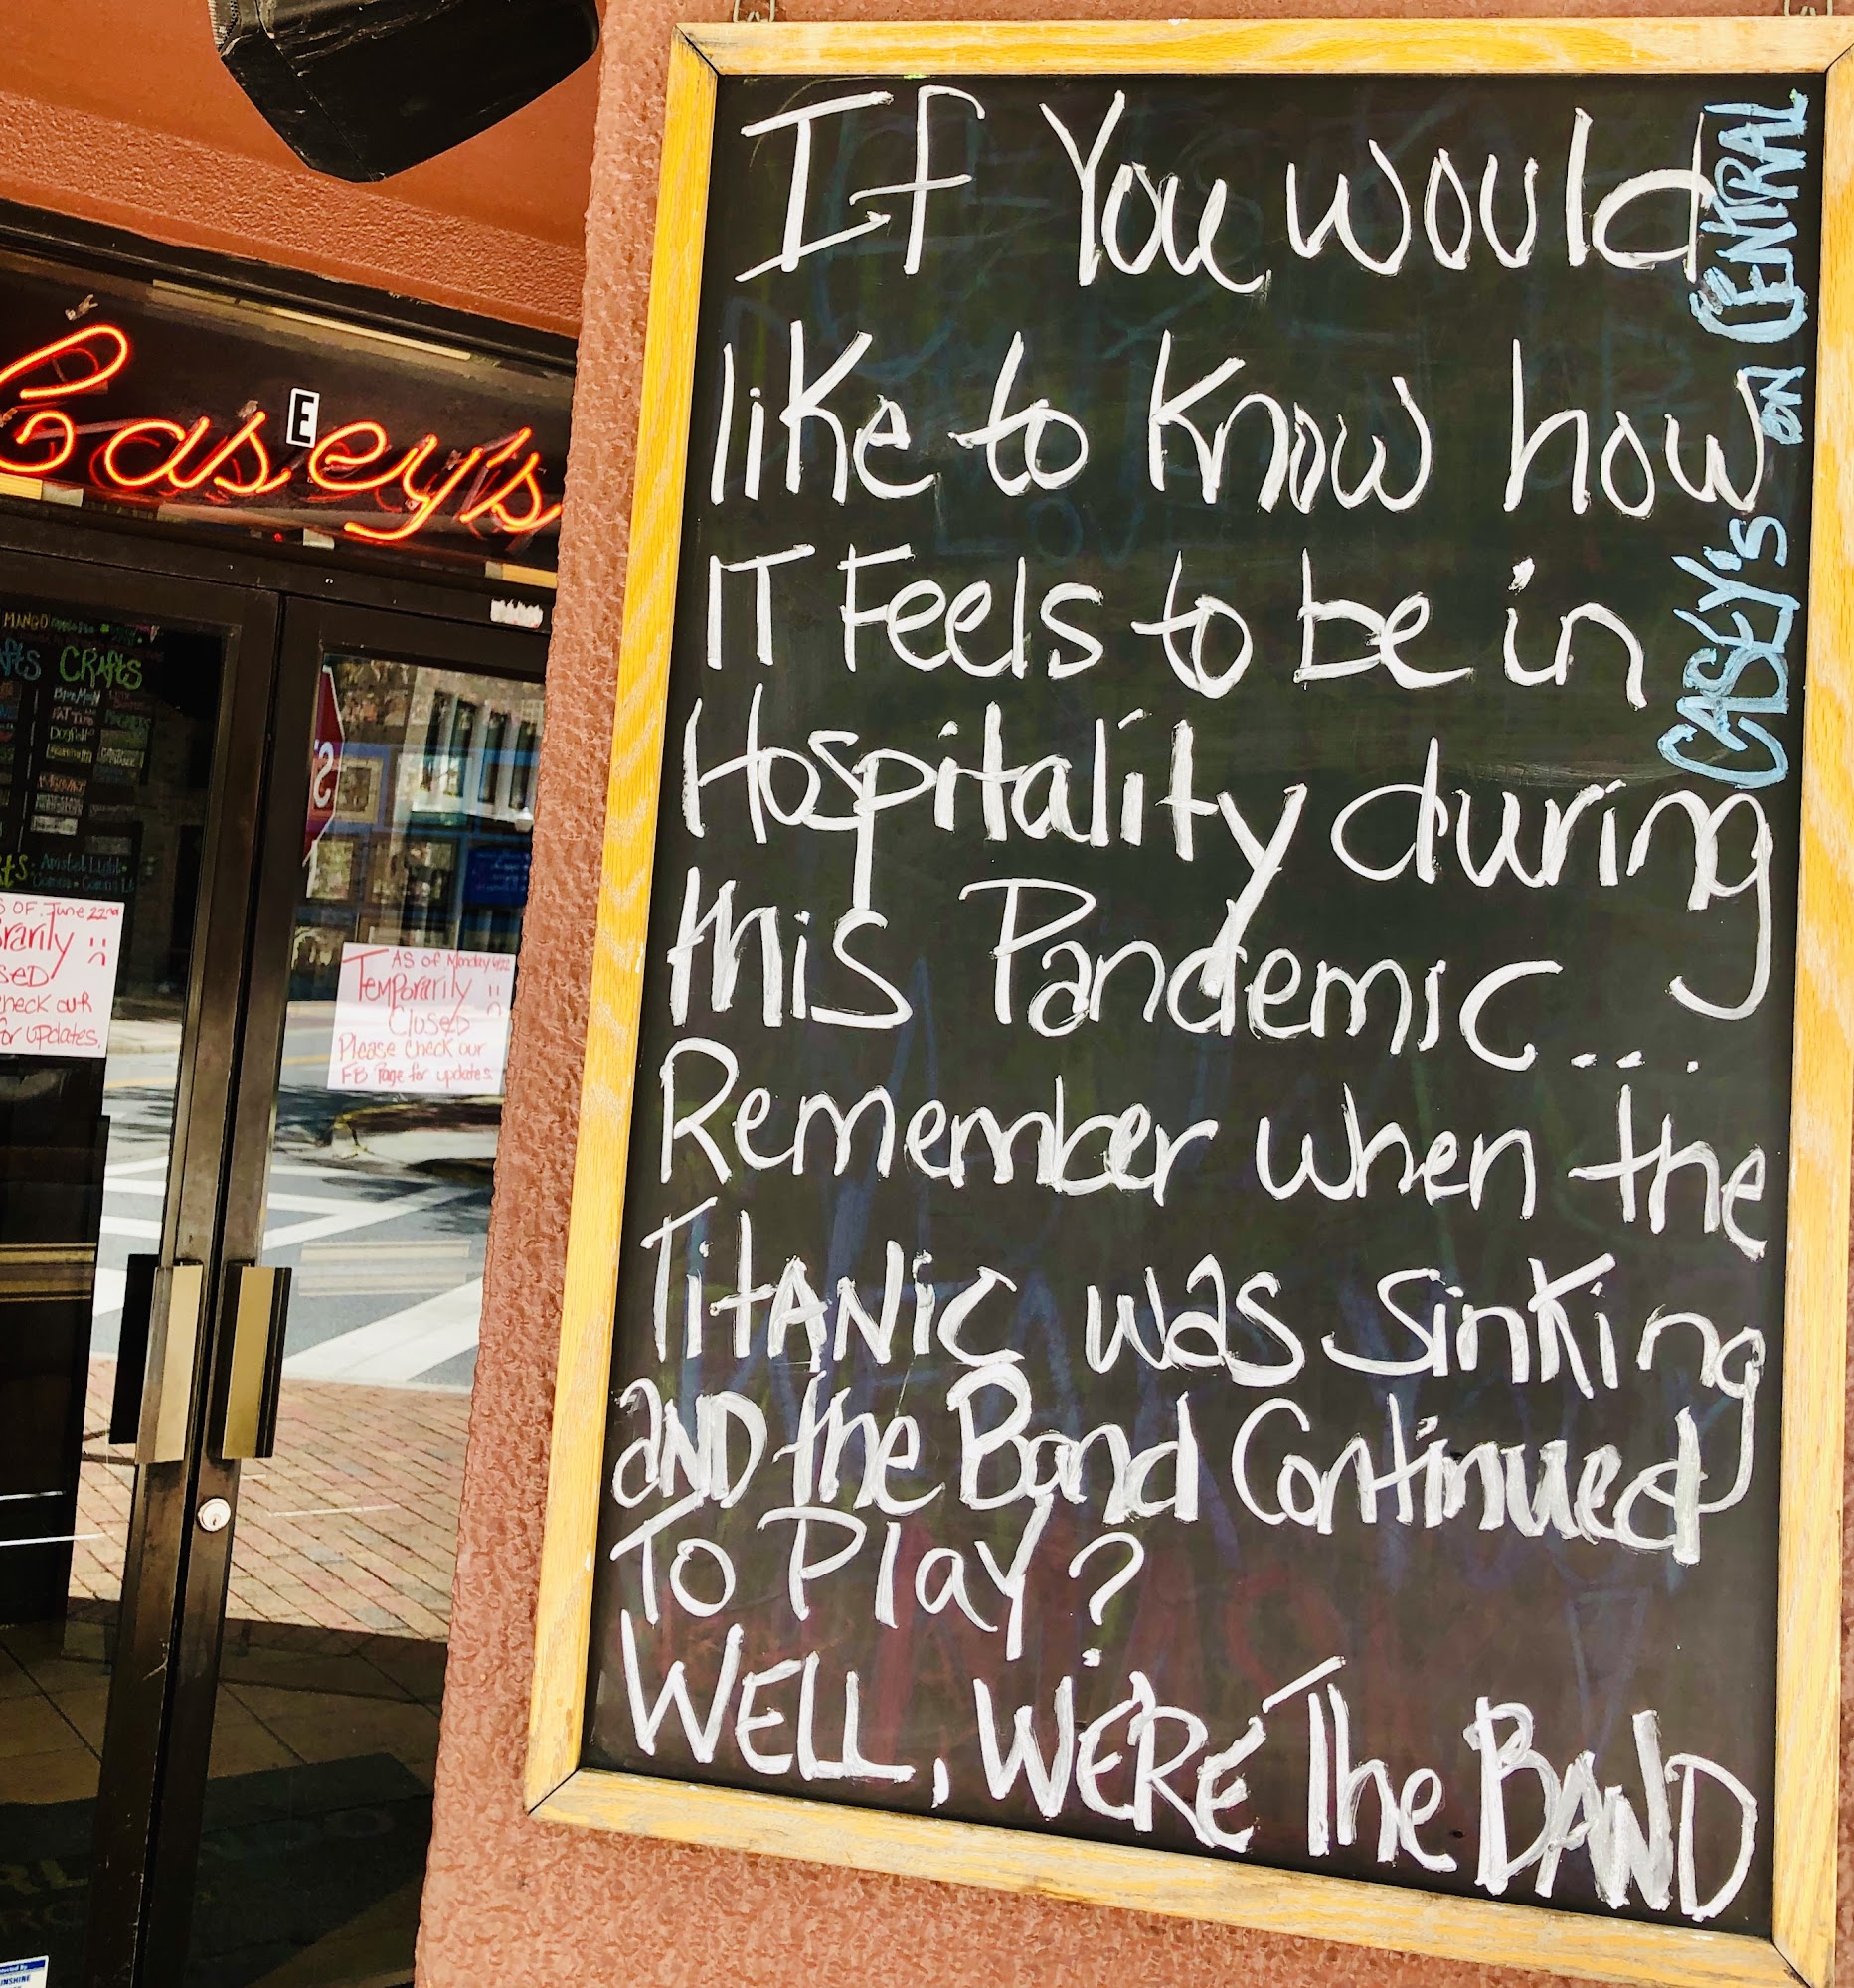 If You would
like to Know how
IT Feels to be in
Hospitality during
this Pandemic...
Remember when the
TitANic was sinKing
aND the Band Continued
To Play?
WELL, WE'RE The BAND
CASEY's on CENTRAL
Casey's
E
MANGO
CRAfts
Blue Moon
FAT Tire
Dogfish
Amstel Light
S OF June 22nd
rarily
SED
heck our
or updates.
AS of Monday 6/22
Temporarily
Closed
Please check our
FB Page for updates.